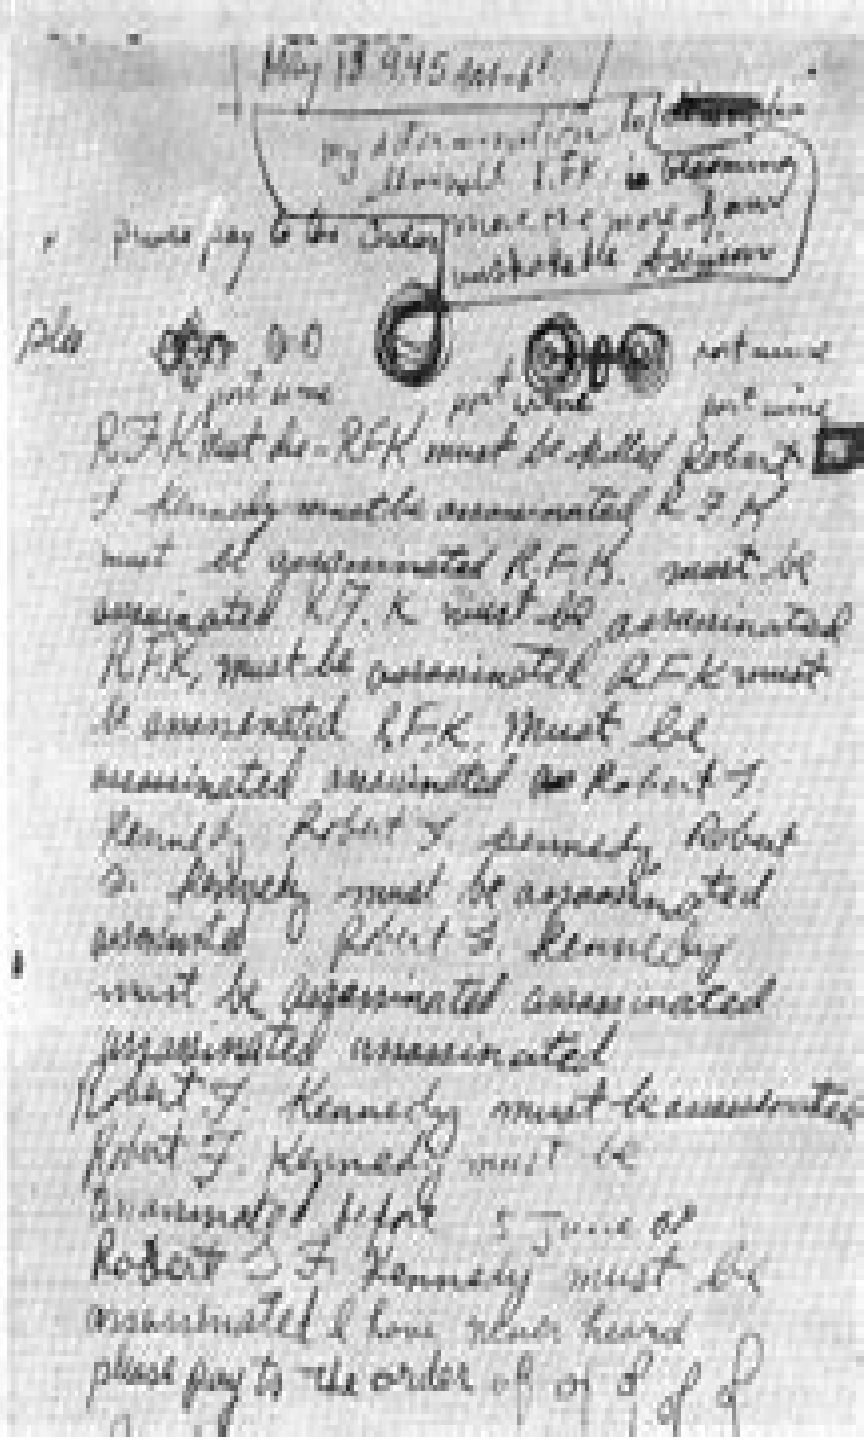 May 18 9.45 AM-68
My determination to
eliminate R.F.K. is becoming
more the more of an
unshakable obsession
please pay to the order
port wine
port wine port wine port wine
R.F.K must die - RFK must be killed Robert
F. Kennedy must be assassinated R.F.K
must be assassinated R.F.K. must be
assassinated R.F.K must be assassinated
R.F.K. must be assassinated R.F.K must
be assassinated R.F.K. Must be
assassinated assassinated Robert F.
Kennedy Robert F. Kennedy Robert
F. Kennedy must be assassinated
assassinated Robert F. Kennedy
must be assassinated assassinated
assassinated assassinated
Robert F. Kennedy must be assassinated
Robert F. Kennedy must be
assassinated before 5 June 68
Robert F. Kennedy must be
assassinated I have never heard
please pay to the order of of of of of